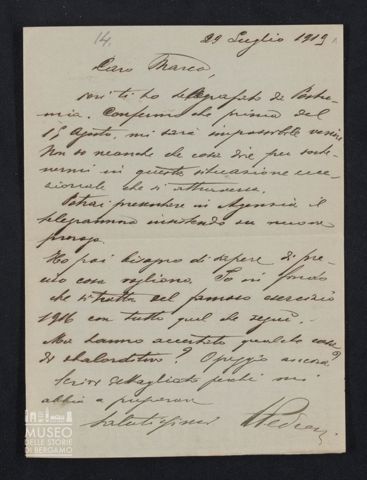 14.
29 Luglio 1919
Caro Marco,
ieri ti ho telegrafato da
mia. Confermo che prima del
15 Agosto, mi sarà impossibile venire
Non so neanche che cosa dire per soste-
nermi in questa situazione ecce-
zionale che si attraversa.
Potrai presentare in Agenzia il
telegramma insistendo su nuova
proroga.
Ho poi bisogno di sapere di pre-
ciso cosa vogliono. So in fondo
che si tratta del famoso esercizio
1916 con tutto quel che seguì.
Ma hanno accertato qualche cosa
di sbalorditivo? O peggio ancora?
Scrivi dettagliato perchè mi
abbia a preparare
Salutissimi
MUSEO
DELLE STORIE
DI BERGAMO